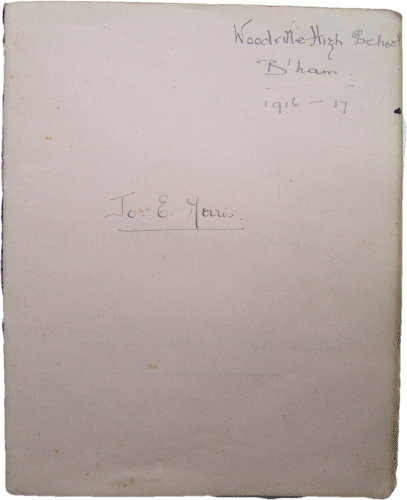 Woodville High School
B'ham.
1916 - 17
To E. Morris.